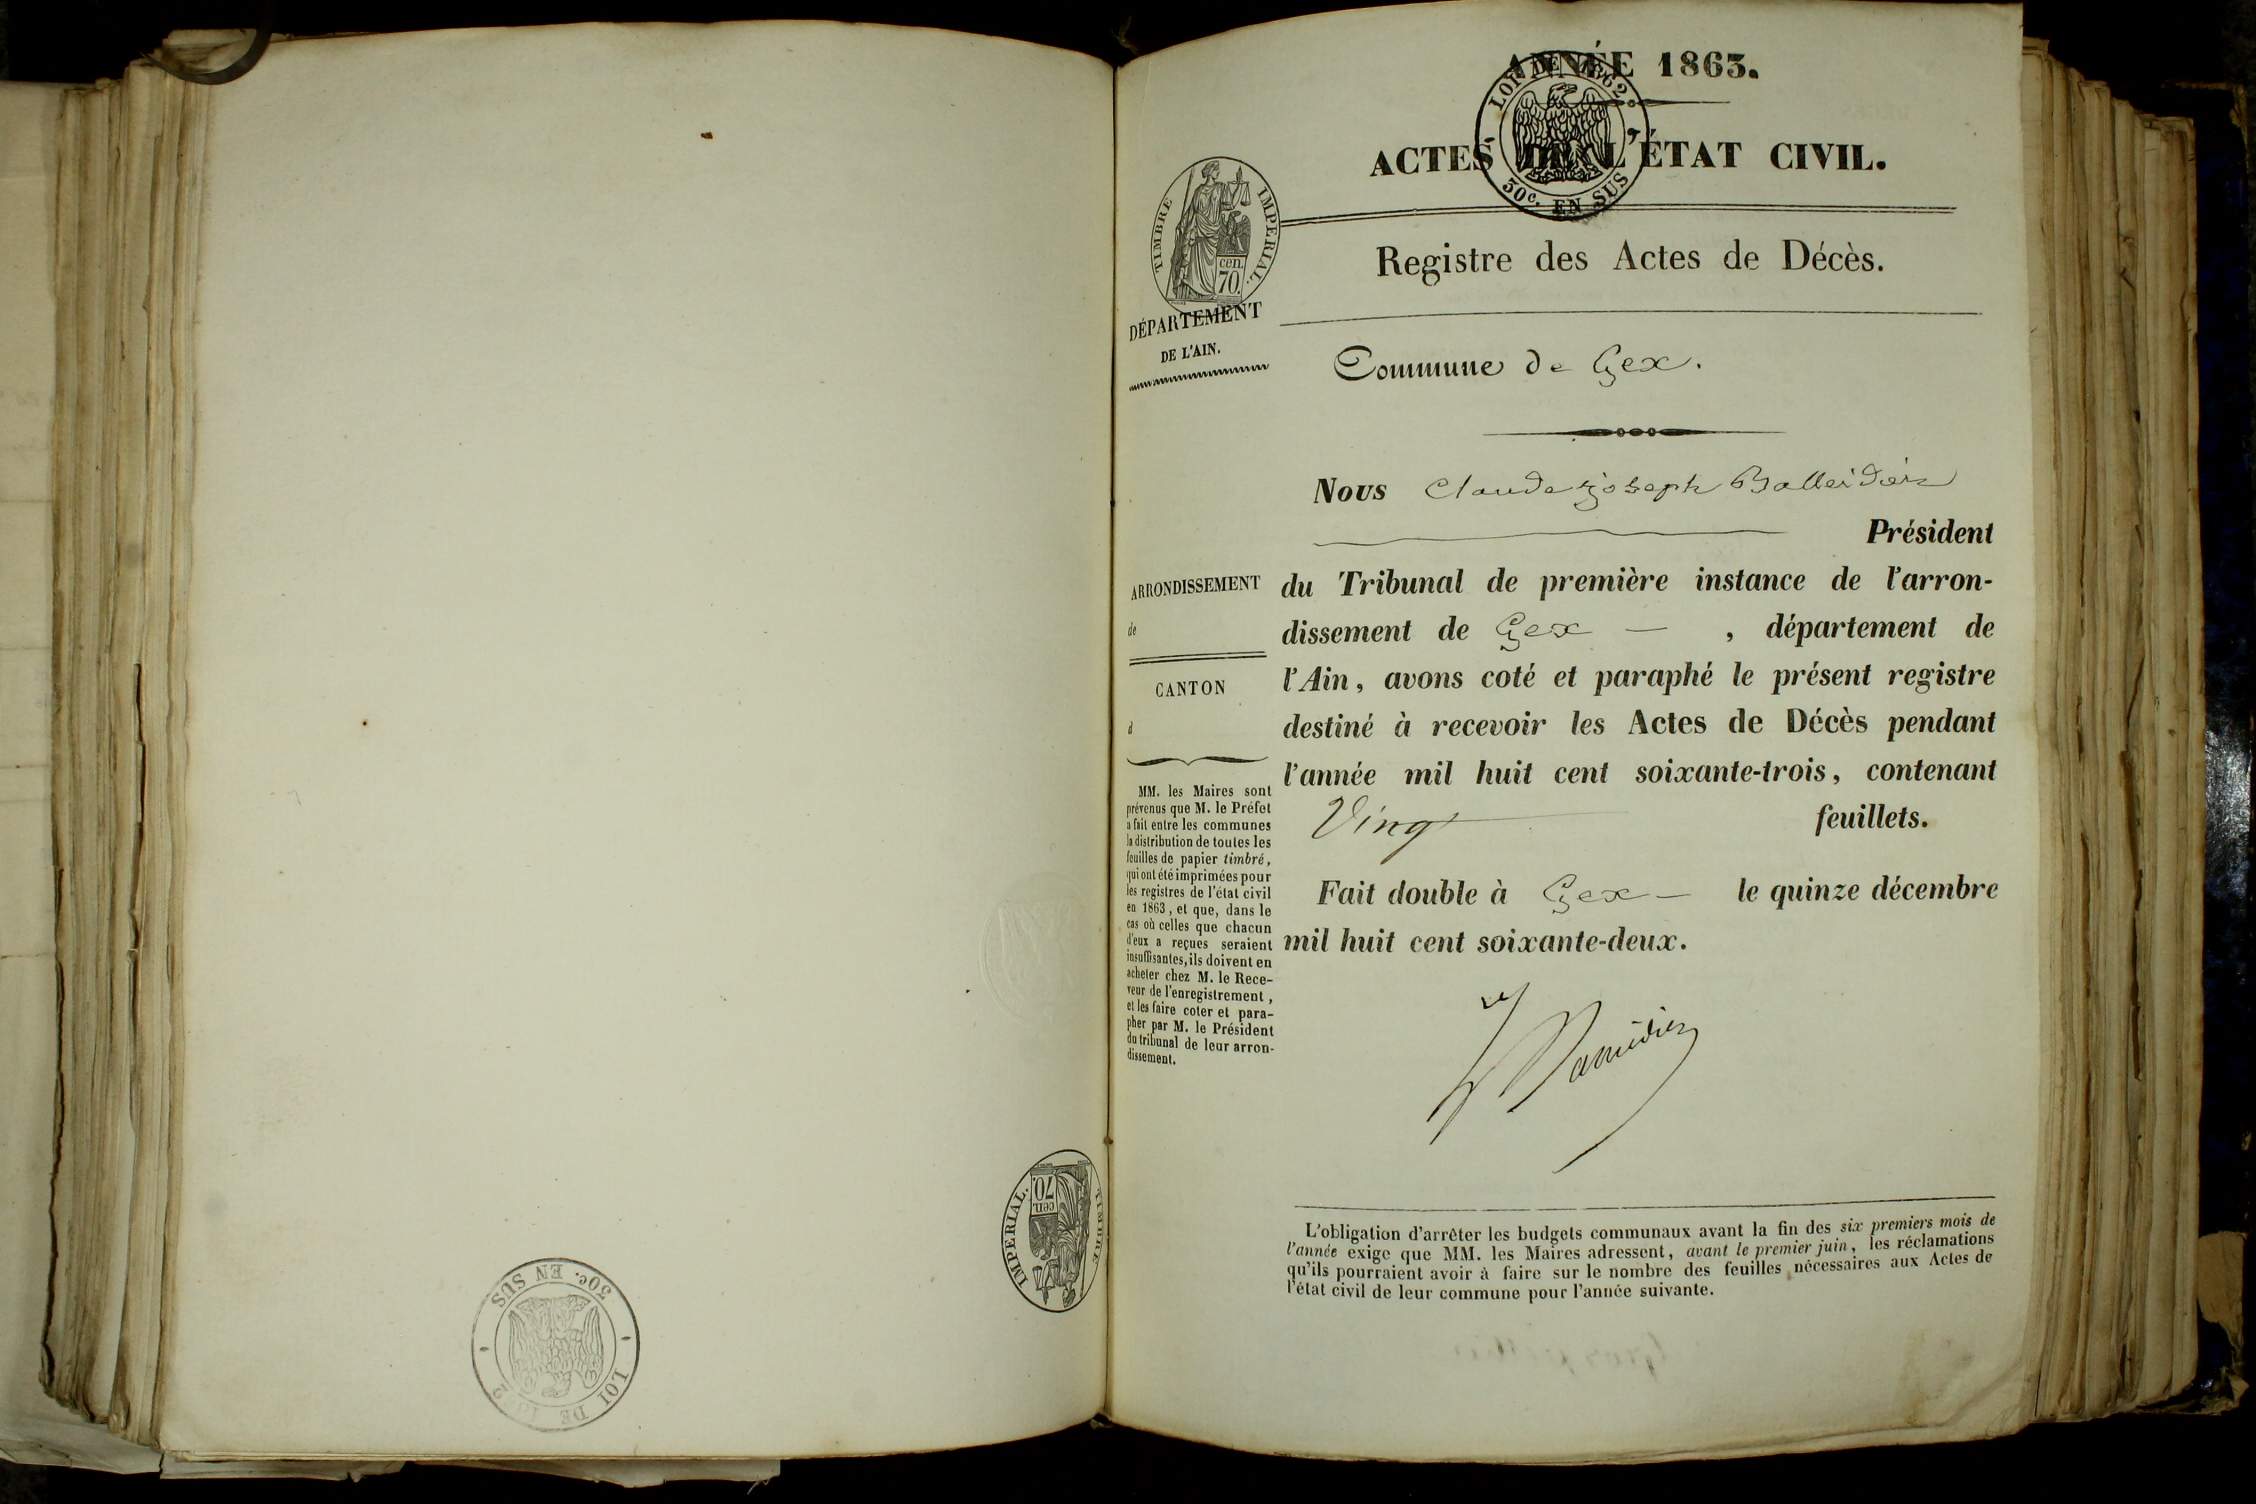 ANNÉE 1863.
LOI DE 1862
30c. EN SUS
ACTES DE L'ÉTAT CIVIL.
TIMBRE IMPÉRIAL.
cen.
70.
Registre des Actes de Décès.
DÉPARTEMENT
DE L'AIN.
Commune de Gex.
Nous Claude Joseph
Président
du Tribunal de première instance de l'arron-
dissement de Gex — , département de
l'Ain, avons coté et paraphé le présent registre
destiné à recevoir les Actes de Décès pendant
l'année mil huit cent soixante-trois, contenant
Vingt feuillets.
Fait double à Gex — le quinze décembre
mil huit cent soixante-deux.
ARRONDISSEMENT
de
CANTON
d
MM. les Maires sont
prévenus que M. le Préfet
a fait entre les communes
la distribution de toutes les
feuilles de papier timbré,
qui ont été imprimées pour
les registres de l'état civil
en 1863, et que, dans le
cas où celles que chacun
d'eux a reçues seraient
insuffisantes, ils doivent en
acheter chez M. le Rece-
veur de l'enregistrement,
et les faire coter et para-
pher par M. le Président
du tribunal de leur arron-
dissement.
L'obligation d'arrêter les budgets communaux avant la fin des six premiers mois de
l'année exige que MM. les Maires adressent, avant le premier juin, les réclamations
qu'ils pourraient avoir à faire sur le nombre des feuilles nécessaires aux Actes de
l'état civil de leur commune pour l'année suivante.
TIMBRE IMPÉRIAL.
cen.
70.
LOI DE 1862
30c. EN SUS